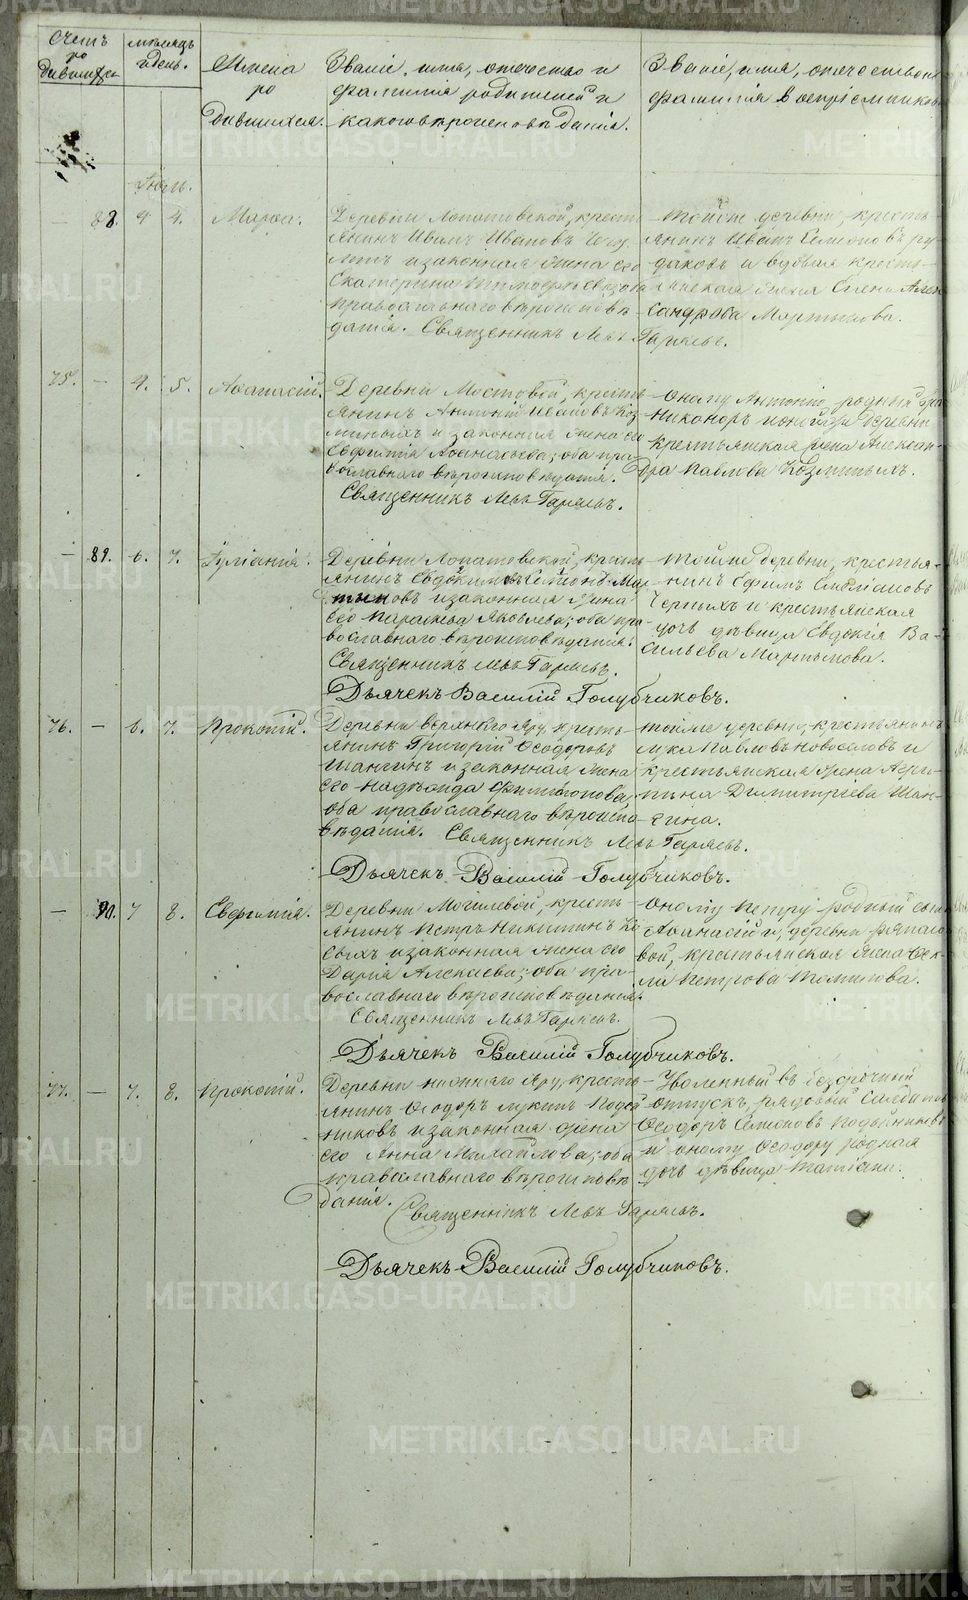 Счетъ
ро
дившихся
мѣсяцъ
и день.
Имена
ро
дившихся.
Званіе, имя, отчество и
фамилія родителей и
какого вѣроисповѣданія.
Званіе, имя, отчество и
фамилія воспріемниковъ
Іюль.
— 88. 4 4. Марѳа.
Деревни Лопатовской, кресть
янинъ Иванъ Ивановъ
и законная жена его
Екатерина Тимофеева; оба
православнаго вѣроисповѣ
данія. Священникъ Левъ Гаряевъ.
Той же деревни, кресть
янинъ Иванъ Семеновъ Ру
даковъ и вдовая кресть
янская жена Елена Алек
сандрова Мартынова.
75. — 4. 5. Аѳанасій.
Деревни Мостовой, кресть
янинъ Антоній Ивановъ Коз
миныхъ и законная жена его
Евфимія Аѳанасьева; оба пра
вославнаго вѣроисповѣданія.
Священникъ Левъ Гаряевъ.
Оному Антонію родный братъ
Никаноръ и оной же деревни
крестьянская жена Алексан
дра Павлова Козминыхъ.
— 89. 6. 7. Іуліанія.
Деревни Лопатовской, кресть
янинъ Евдокимъ Семеновъ Мар
тыновъ и законная жена
его Параскева Яковлева; оба пра
вославнаго вѣроисповѣданія.
Священникъ Левъ Гаряевъ.
Дьячекъ Василій Голубчиковъ.
Той же деревни, крестья
нинъ Ефимъ
Черныхъ и крестьянская
дочь дѣвица Евдокія Ва
сильева Мартынова.
76. — 6. 7. Прокопій.
Деревни Верхняго Яру, кресть
янинъ Григорій Ѳеодоровъ
Шангинъ и законная жена
его Надежда Филимонова,
оба православнаго вѣроиспо
вѣданія. Священникъ Левъ Гаряевъ.
Дьячекъ Василій Голубчиковъ.
Той же деревни, крестьянинъ
Лука Павловъ Новоселовъ и
крестьянская жена Агри
пина Димитріева Шан
гина.
— 90. 7 8. Евфимія.
Деревни Могилевой, кресть
янинъ Петръ Никитинъ Ко
сыхъ и законная жена его
Дарія Алексѣева; оба пра
вославнаго вѣроисповѣданія.
Священникъ Левъ Гаряевъ.
Дьячекъ Василій Голубчиковъ.
Оному Петру родный сынъ
Аѳанасій и, деревни
вой, крестьянская жена Ѳек
ла Петрова
77. — 7. 8. Прокопій.
Деревни Нижняго Яру, кресть
янинъ Ѳеодоръ Лукинъ Подой
никовъ и законная жена
его Анна Михайлова; оба
православнаго вѣроисповѣ
данія. Священникъ Левъ Гаряевъ.
Дьячекъ Василій Голубчиковъ.
Уволенный въ безсрочный
отпускъ, рядовый
Ѳеодоръ Семеновъ Подойниковъ
и оному Ѳеодору родная
дочь дѣвица Татіана.
METRIKI.GASO-URAL.RU